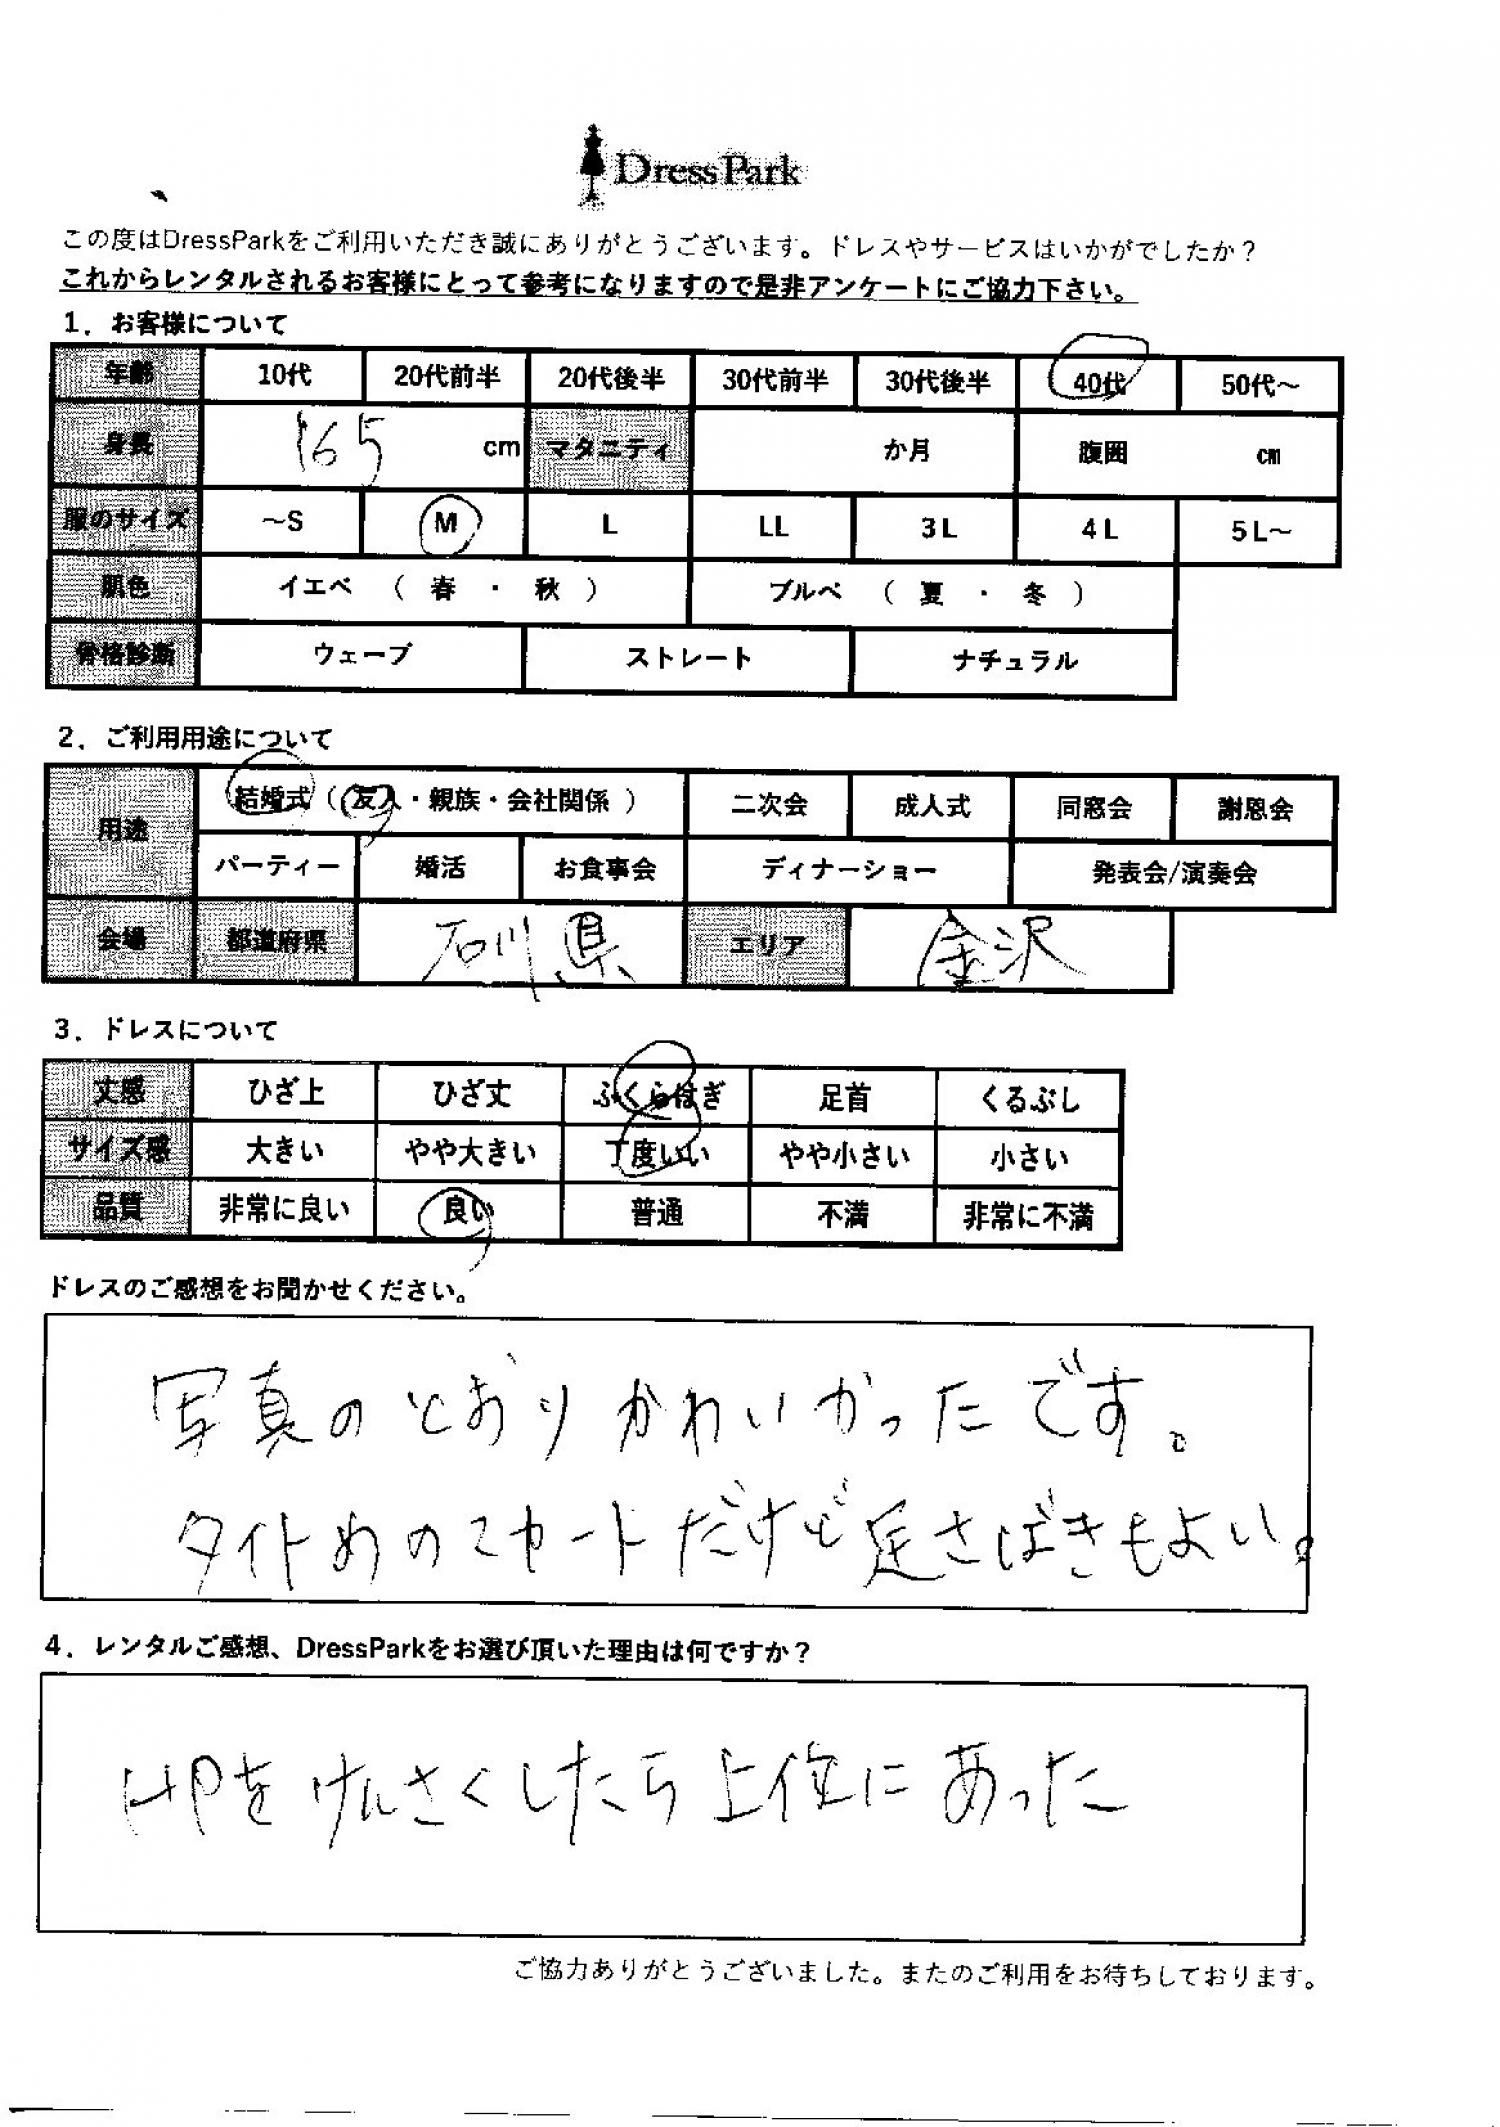 DressPark
この度はDressParkをご利用いただき誠にありがとうございます。ドレスやサービスはいかがでしたか？
これからレンタルされるお客様にとって参考になりますので是非アンケートにご協力下さい。
1．お客様について
年齢 10代 20代前半 20代後半 30代前半 30代後半 40代 50代～
身長 165 cm マタニティ か月 腹囲 cm
服のサイズ ～S M L LL 3L 4L 5L～
肌色 イエベ （ 春 ・ 秋 ） ブルベ （ 夏 ・ 冬 ）
骨格診断 ウェーブ ストレート ナチュラル
2．ご利用用途について
用途 結婚式（友人・親族・会社関係 ） 二次会 成人式 同窓会 謝恩会
パーティー 婚活 お食事会 ディナーショー 発表会/演奏会
会場 都道府県 石川県 エリア 金沢
3．ドレスについて
丈感 ひざ上 ひざ丈 ふくらはぎ 足首 くるぶし
サイズ感 大きい やや大きい 丁度いい やや小さい 小さい
品質 非常に良い 良い 普通 不満 非常に不満
ドレスのご感想をお聞かせください。
写真のとおりかわいかったです。
タイトめのスカートだけど足さばきもよい。
4．レンタルご感想、DressParkをお選び頂いた理由は何ですか？
HPをけんさくしたら上位にあった
ご協力ありがとうございました。またのご利用をお待ちしております。